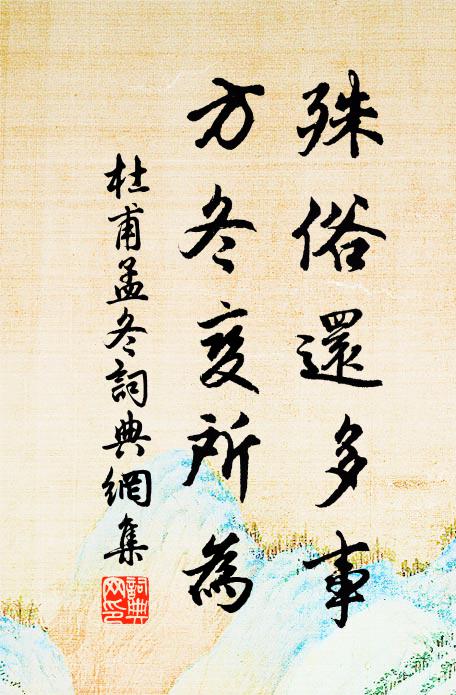 殊俗還多事
方冬变所為
杜甫孟冬詞典網集
詞典网印